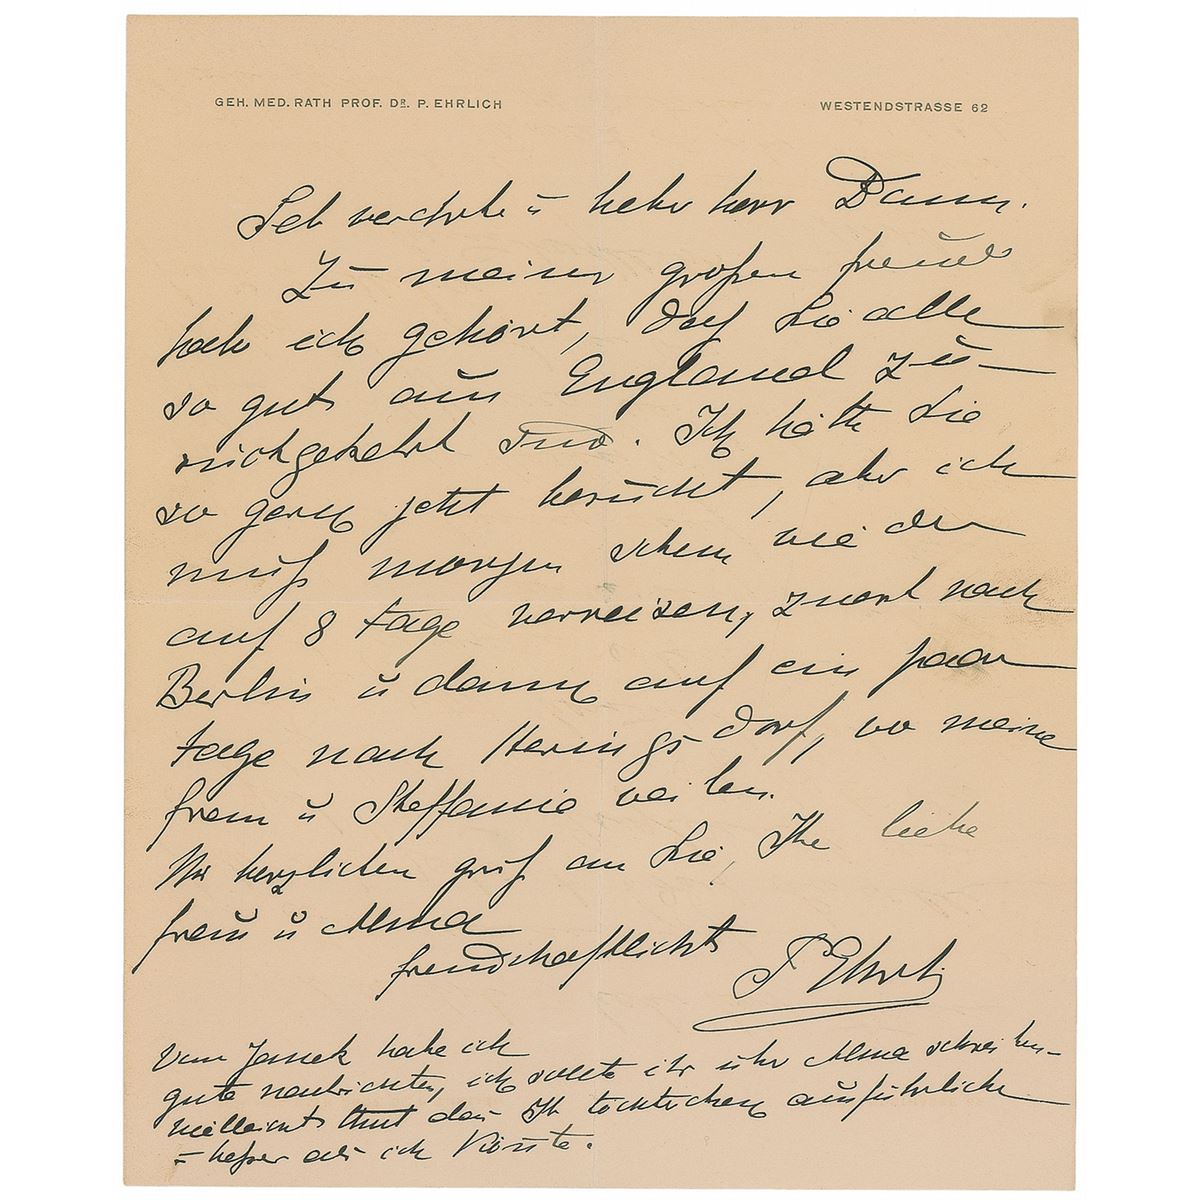 GEH. MED. RATH PROF. DR. P. EHRLICH
WESTENDSTRASSE 62
verehrter u lieber Herr Dann.
Zu meiner großen Freude
habe ich gehört, daß Sie alle
so gut aus England zu-
rückgekehrt sind. Ich hätte Sie
so gern jetzt besucht, aber ich
muß morgen schon wieder
auf 8 Tage verreisen, zuerst nach
Berlin u dann auf ein paar
Tage nach Heringsdorf, wo meine
Frau u Steffanie weilen.
Mit herzlichen Gruß an Sie, Ihre liebe
Frau u Alma
freundschaftlichst
P Ehrlich
Von Janek habe ich
gute Nachrichten, ich sollte ihr über Alma schreiben -
vielleicht thut das Ihr Töchterchen ausführlicher
u besser als ich könnte.